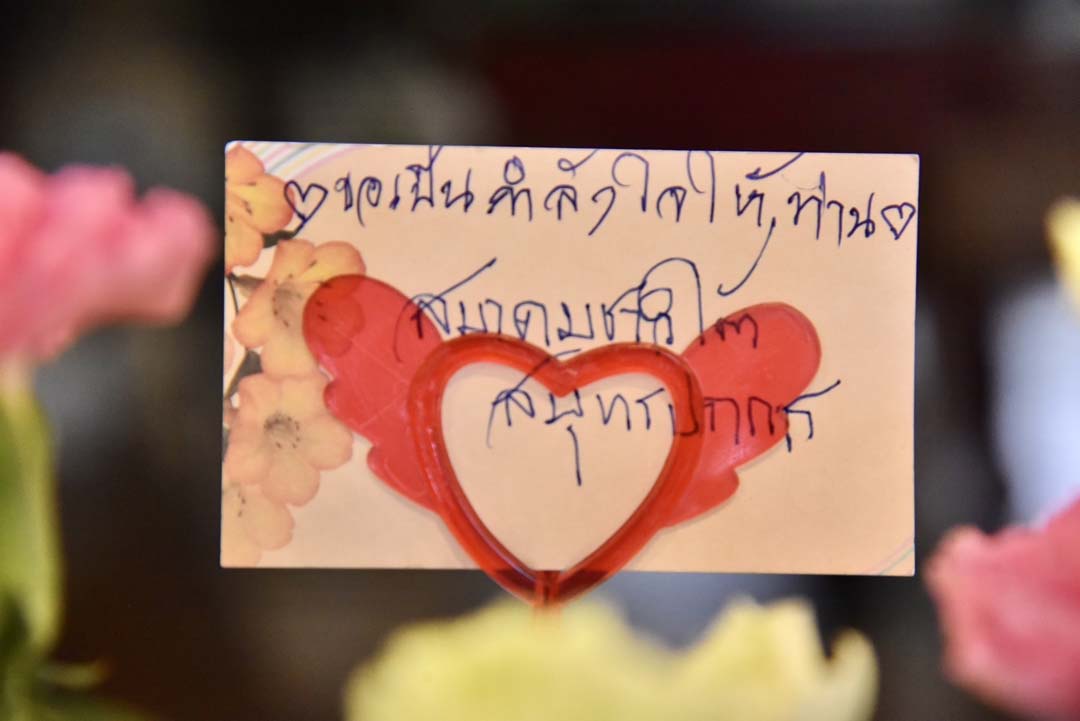 ♡ ขอเป็นกำลังใจให้ท่าน ♡
สมาคมชาวใต้
สมุทรปราการ